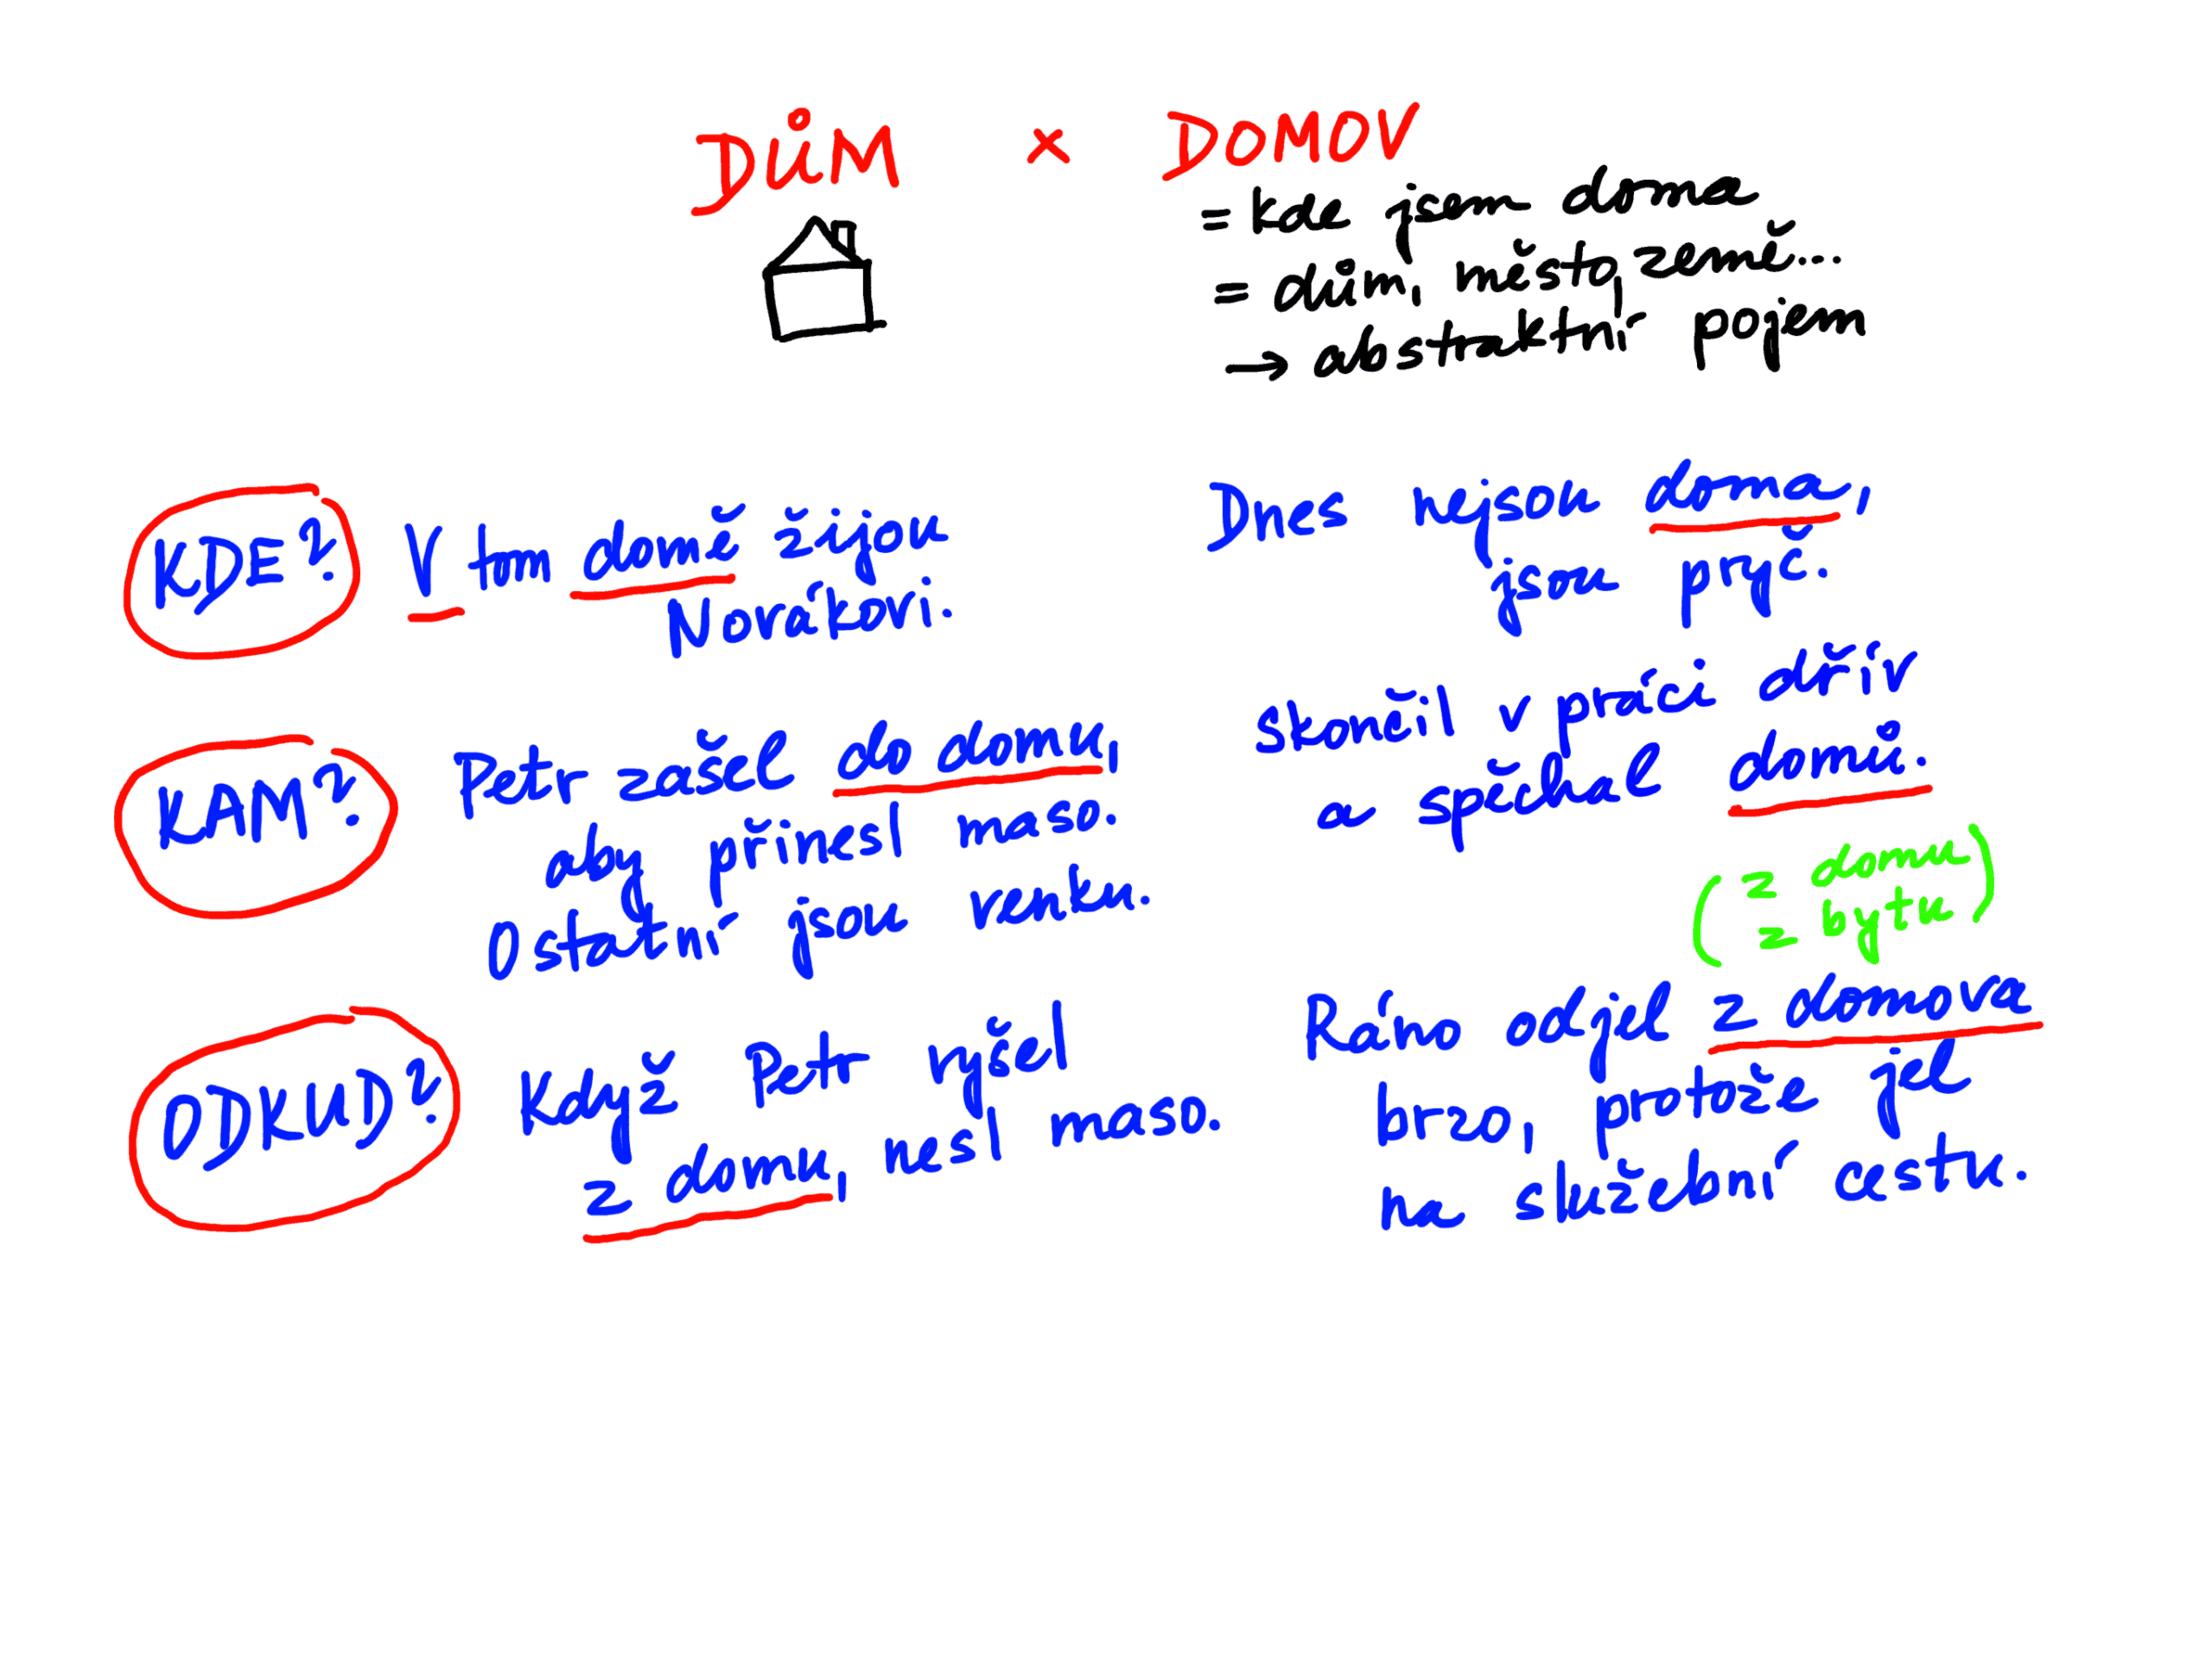 DŮM × DOMOV
= kde jsem doma
= dům, město, země...
→ abstraktní pojem
KDE?
V tom domě žijou
Novákovi.
Dnes nejsou doma,
jsou pryč.
KAM?
Petr zašel do domu,
aby přinesl maso.
Ostatní jsou venku.
Skončil v práci dřív
a spěchal domů.
(z domu
z bytu)
ODKUD?
Když Petr vyšel
z domu, nesl maso.
Ráno odjel z domova
brzo, protože jel
na služební cestu.